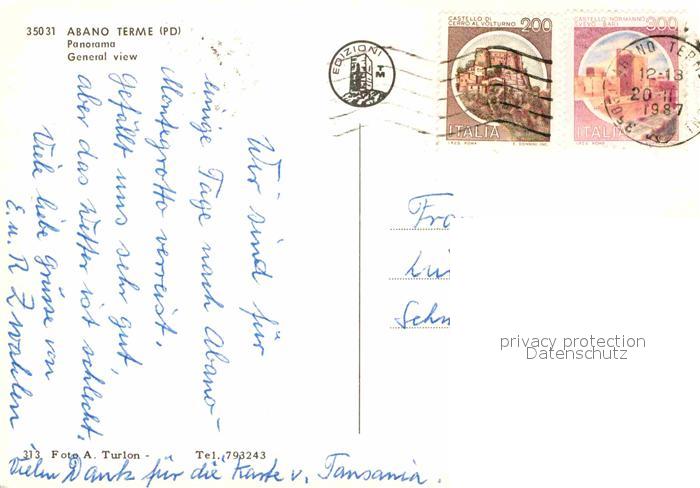 35031 ABANO TERME (PD)
Panorama
General view
EDIZIONI
TM
CASTELLO DI
CERRO AL VOLTURNO
200
ITALIA
I.P.Z.S. ROMA
E. DONNINI INC.
CASTELLO NORMANNO
SVEVO - BARI
300
ITALIA
I.P.Z.S. ROMA
ABANO TER
12-18
20 II
1987
Wir sind für
einige Tage nach Abano-
Montegrotto verreist.
Gefällt uns sehr gut,
aber das Wetter ist schlecht.
Viele liebe Grüsse von
E. u. R. Zwahlen
Fra
Lui
Schn
privacy protection
Datenschutz
313 Foto A. Turlon - Tel. 793243
Vielen Dank für die Karte v. Tansania.